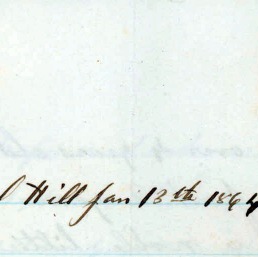 Hill Jan 13th 1864